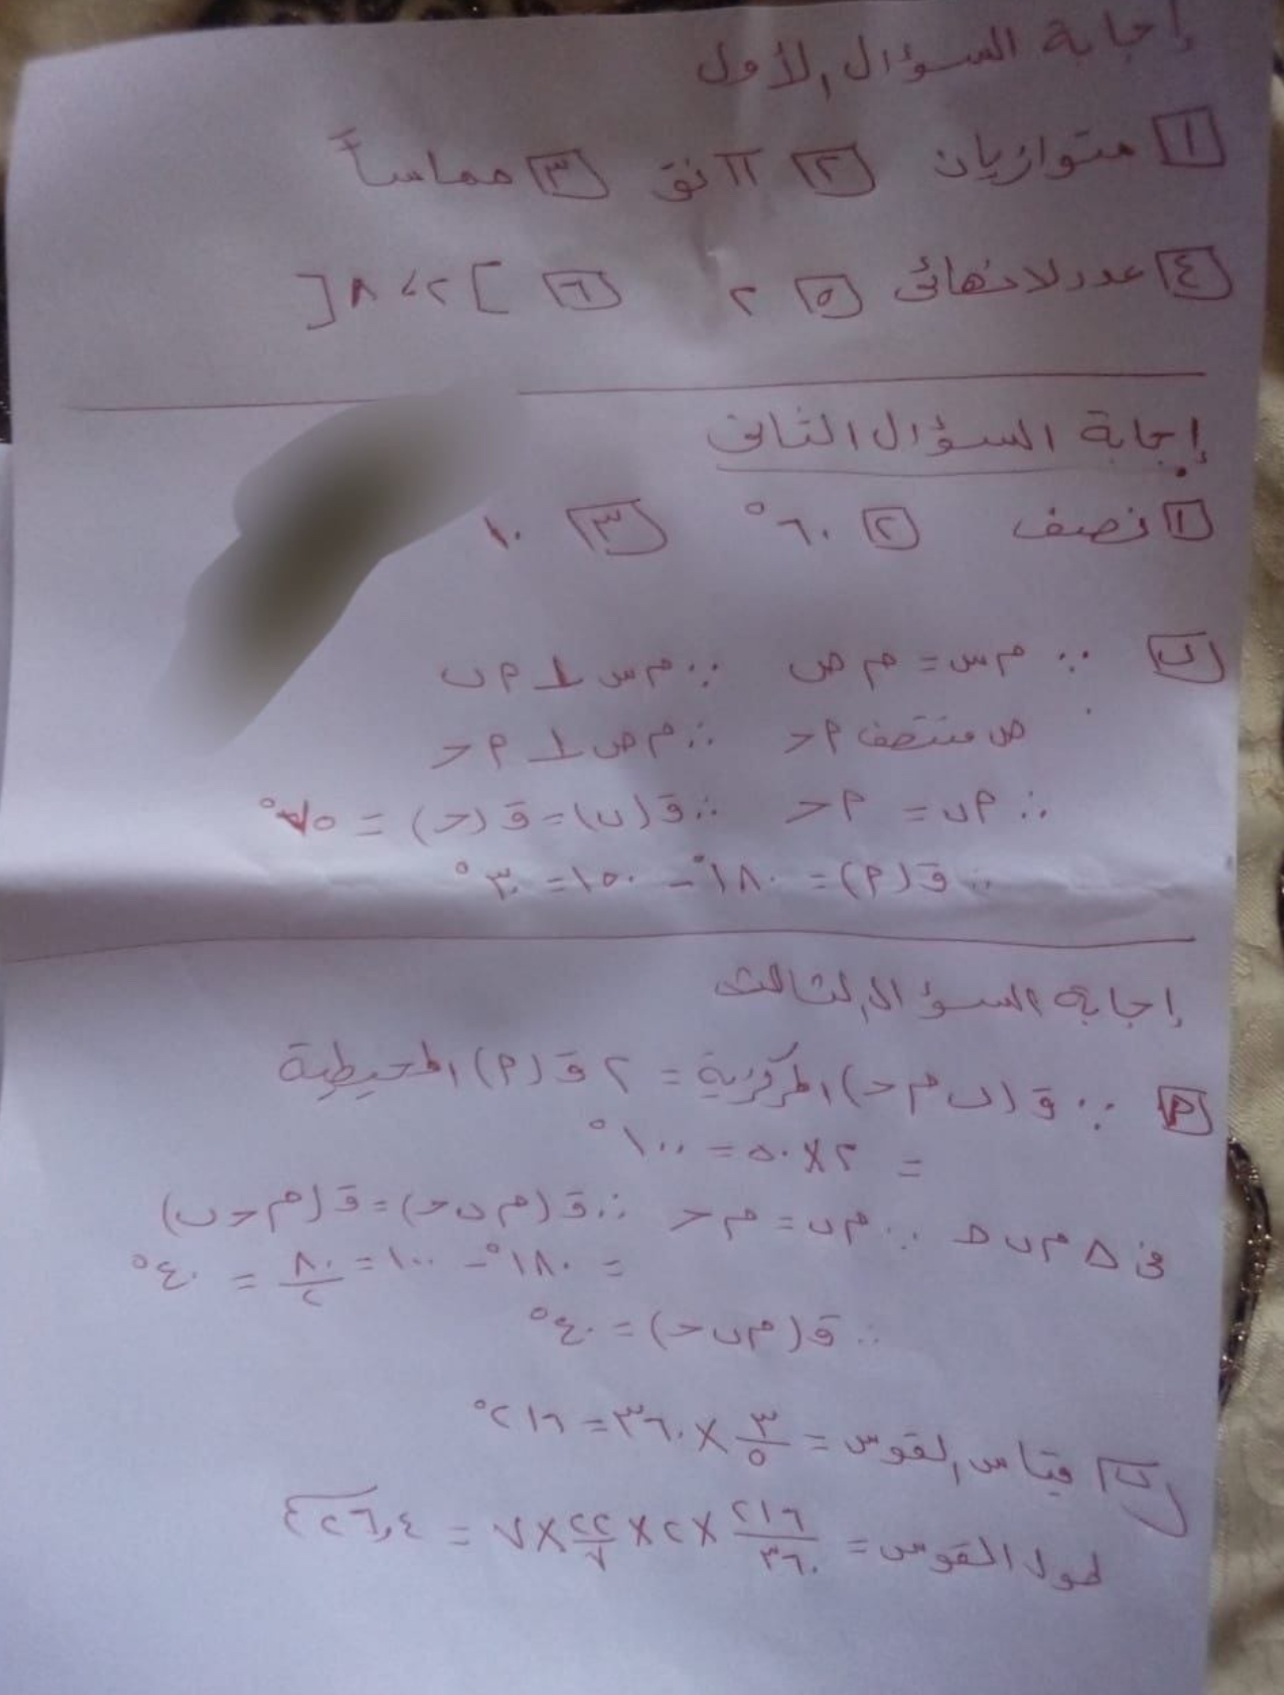 إجابة السؤال الأول
١ متوازيان ٢ π نق ٣ مماساً
٤ عدد لا نهائى ٥ ٢ ٦ ]٢ ، ٨[
إجابة السؤال الثانى
١ نصف ٢ ٦٠° ٣ ١٠
ب ∵ م س = م ص ∵ م س ⊥ م ب
ص منتصف م ح ∴ م ص ⊥ م ح
∴ م ب = م ح ∴ ق (ب) = ق (ح) = ٧٥°
∴ ق (م) = ١٨٠° - ١٥٠ = ٣٠°
إجابة السؤال الثالث
م ∵ ق (ب م ح) المركزية = ٢ ق (م) المحيطية
= ٢ × ٥٠ = ١٠٠°
فى Δ م ب ح ∵ م ب = م ح ∴ ق (م ب ح) = ق (م ح ب)
= ١٨٠° - ١٠٠ = ٨٠/٢ = ٤٠°
∴ ق (م ب ح) = ٤٠°
ب قياس القوس = ٣/٥ × ٣٦٠ = ٢١٦°
طول القوس = ٢١٦/٣٦٠ × ٢ × ٢٢/٧ × ٧ =